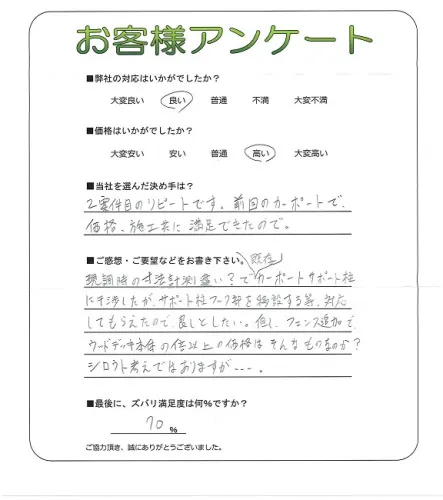 お客様アンケート
■弊社の対応はいかがでしたか？
大変良い 良い 普通 不満 大変不満
■価格はいかがでしたか？
大変安い 安い 普通 高い 大変高い
■当社を選んだ決め手は？
2案件目のリピートです。前回のカーポートで、
価格、施工共に満足できたので。
■ご感想・ご要望などをお書き下さい。
既存
現調時の寸法計測違い？でカーポートサポート柱
に干渉したが、サポート柱フック部を移設する等、対応
してもらえたので、良しとしたい。但し、フェンス追加で
ウッドデッキ本体の倍以上の価格はそんなものなのか？
シロウト考えではありますが---。
■最後に、ズバリ満足度は何％ですか？
70 %
ご協力頂き、誠にありがとうございました。